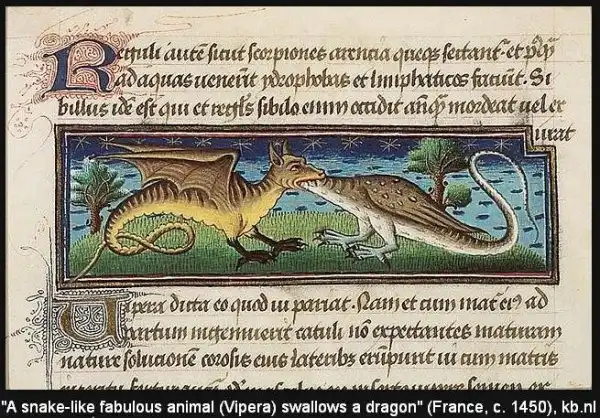 Reguli autē sicut scorpiones arencia queqꝫ sectant᷑ et
ad aquas ueneīt ydrophobas et limphaticos faciūt. Si
billus idē est qui et regl̓s sibilo enim occidit anq̄ mordeat uel ex
urat
Uipera dicta eo quod ui pariat. Nam et cum mat̓ eiꝰ ad
partum ingemuerit catuli nō expectantes maturam
nature solucionē corosis eius lateribꝫ erūpunt ui cum matris
"A snake-like fabulous animal (Vipera) swallows a dragon" (France, c. 1450), kb.nl